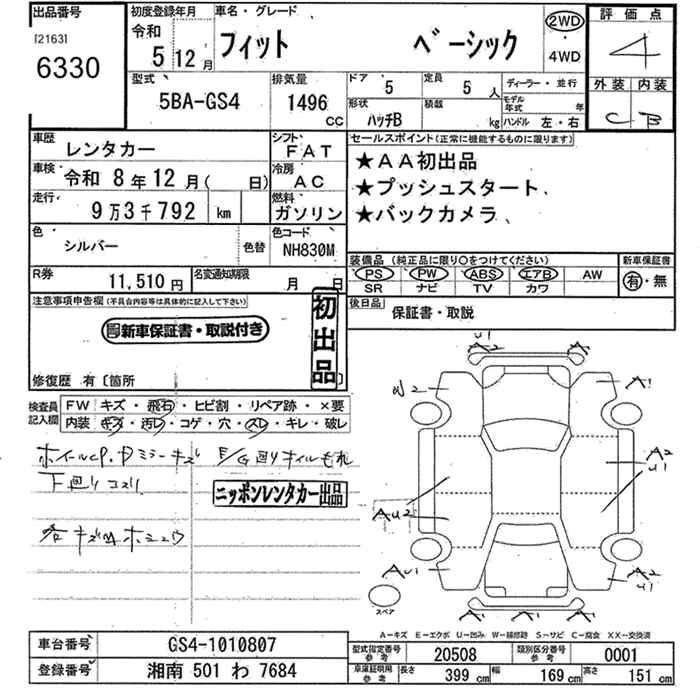 出品番号
[2163]
6330
初度登録年月
令和
5 12月
車名・グレード
フィット ベーシック
2WD
4WD
評価点
4
外装 内装
C B
型式
5BA-GS4
排気量
1496
CC
ドア
5
定員
5人
形状
ハッチB
積載
kg
ディーラー・並行
モデル年式
年
ハンドル 左・右
車歴
レンタカー
シフト
FAT
車検
令和 8年12月( 日)
冷房
AC
走行
9万3千792 km
燃料
ガソリン
色
シルバー
色替
色コード
NH830M
R券
11,510円
名変通知期限
月 日
セールスポイント(正常に機能するものに限ります)
★AA初出品
★プッシュスタート
★バックカメラ
装備品(純正品に限り○をつけてください)
PS PW ABS エアB AW
SR ナビ TV カワ
新車保証書
有・無
後日品
保証書・取説
注意事項申告欄(不具合内容等は具体的に記入して下さい)
新車保証書・取説付き
初出品
修復歴 有〔箇所 〕
検査員記入欄
FW キズ・飛石・ヒビ割・リペア跡・×要
内装 キズ・汚レ・コゲ・穴・スレ・キレ・破レ
下廻りコスリ
ニッポンレンタカー出品
U1
A2
A
W2
A1
A2
U1
AU2
AU1
A1
A2
A2
スペア
A−キズ E−エクボ U−凹み W−補修跡 S−サビ C−腐食 XX−交換済
車台番号
GS4-1010807
登録番号
湘南 501 わ 7684
型式指定番号
参考
20508
類別区分番号
参考
0001
車庫証明用
参考
長さ
399 cm
幅
169 cm
高さ
151 cm